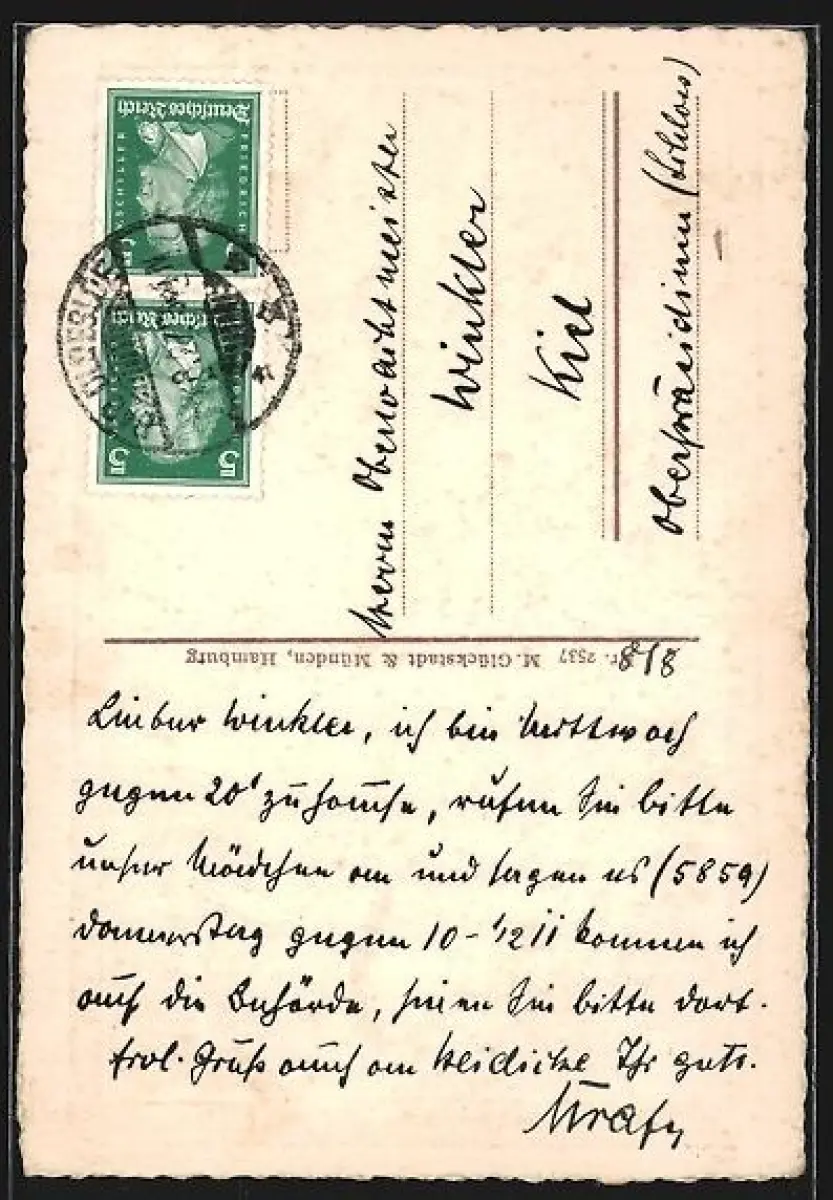 Deutsches Reich
FRIEDRICH
SCHILLER
5
Deutsches Reich
5
5
OLDESLOE
Herrn Oberwachtmeister
Winkler
Kiel
(Schloss)
Nr. 2537 M. Glückstadt & Münden, Hamburg
8/8
Lieber Winkler, ich bin Mittwoch
gegen 20' zuhause, rufen Sie bitte
unser Mädchen an und sagen es (5859)
Donnerstag gegen 10-1/2 11 kommen ich
auf die Behörde, seien Sie bitte dort.
frdl. Gruß auch an Ihr